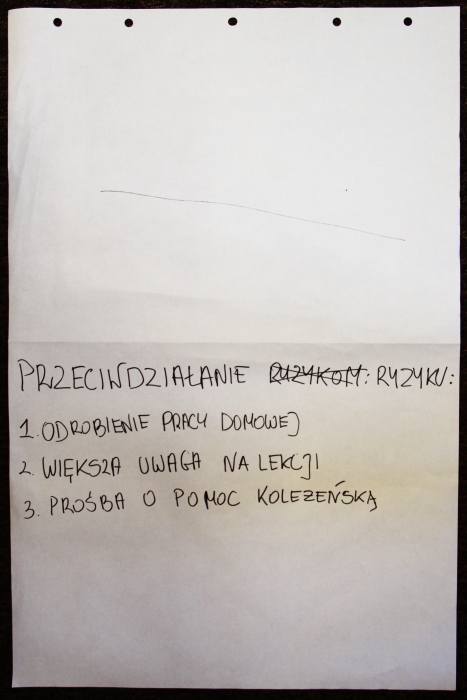 PRZECIWDZIAŁANIE RYZYKOM: RYZYKU:
1. ODROBIENIE PRACY DOMOWEJ
2. WIĘKSZA UWAGA NA LEKCJI
3. PROŚBA O POMOC KOLEZEŃSKĄ